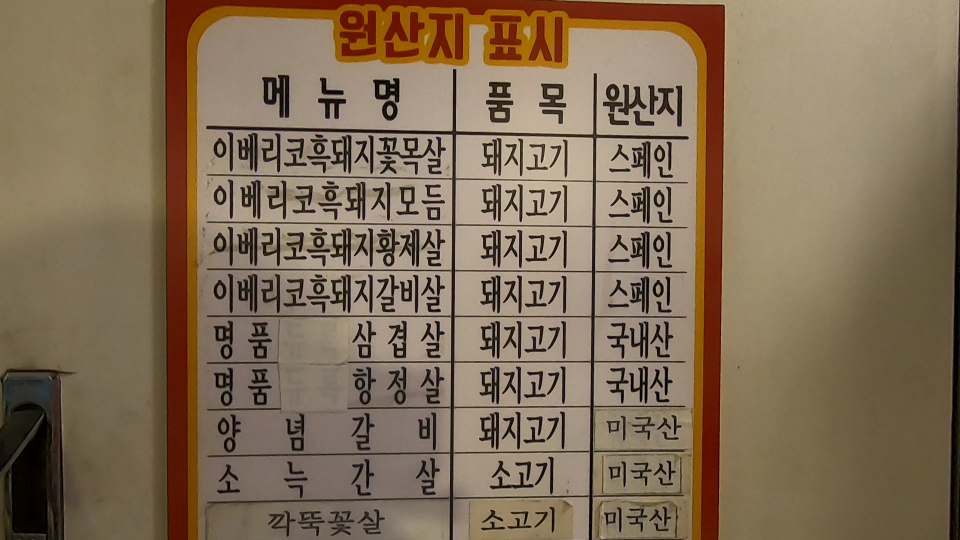 원산지 표시
메뉴명 품목 원산지
이베리코흑돼지꽃목살 돼지고기 스페인
이베리코흑돼지모듬 돼지고기 스페인
이베리코흑돼지황제살 돼지고기 스페인
이베리코흑돼지갈비살 돼지고기 스페인
명품 삼겹살 돼지고기 국내산
명품 항정살 돼지고기 국내산
양념갈비 돼지고기 미국산
소늑간살 소고기 미국산
깍뚝꽃살 소고기 미국산